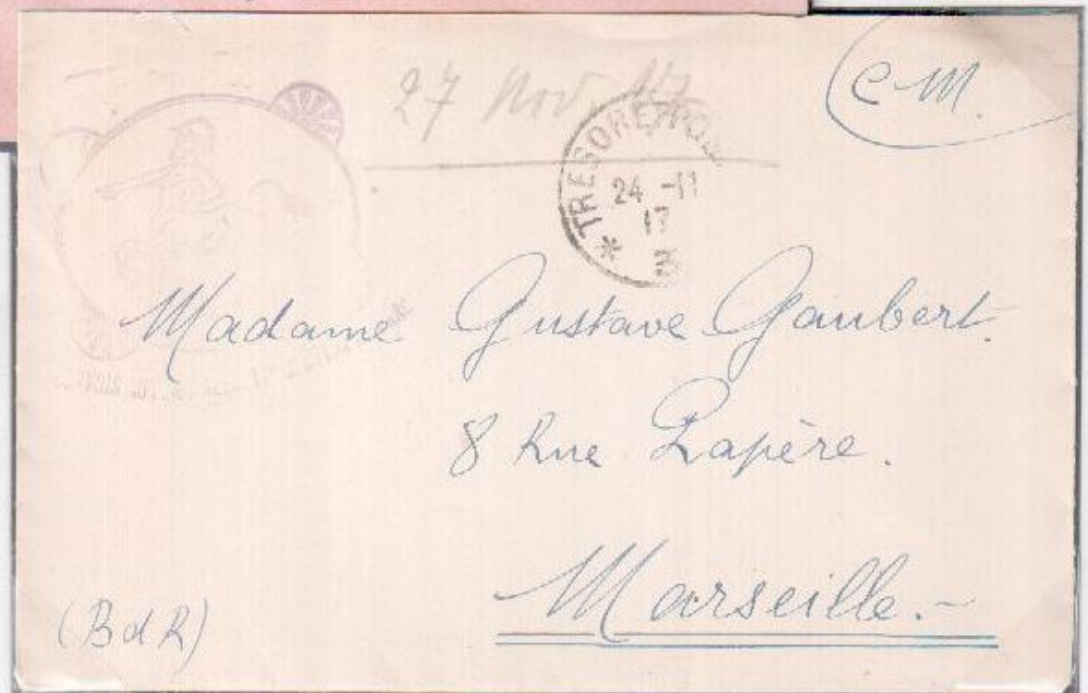 27 Nov. 17
C M.
TRESOR ET POSTES
24 -11
17
*
Madame Gustave Gaubert.
8 Rue Lapère.
Marseille.-
(BdR)